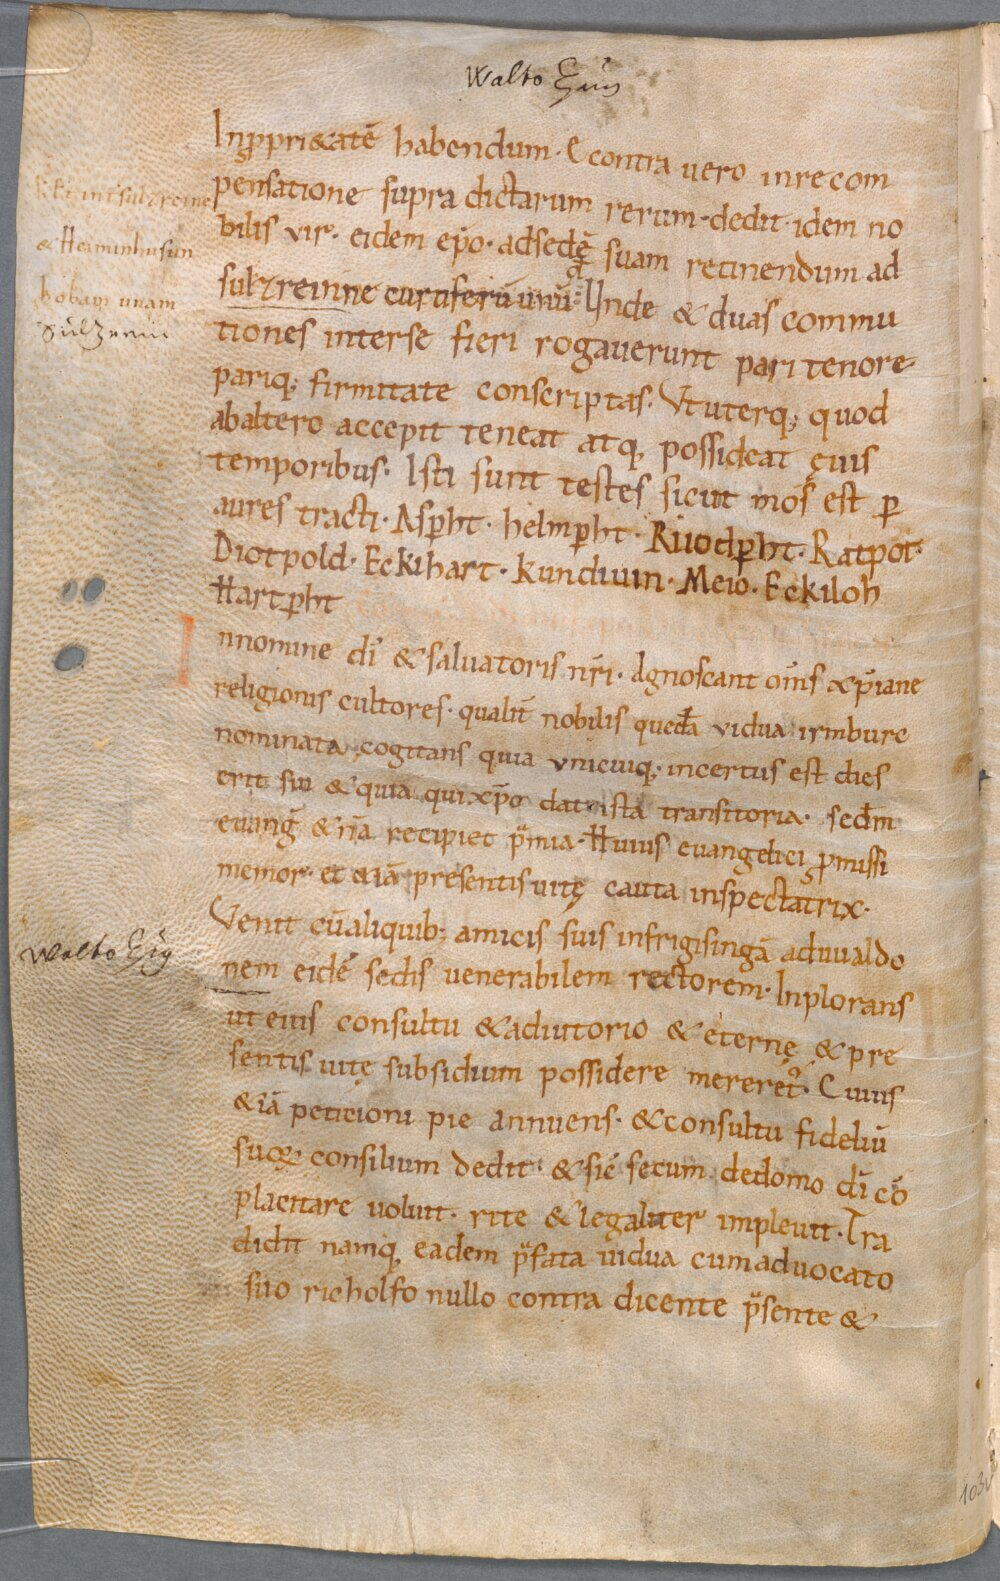 Walto Ep̄us
In ꝓprietatē habendum · E contra vero in recom
pensatione supra dictarum rerum · dedit · idem no
bilis vir · eidem ep̄o · ad sedē suam retinendum ad
sulzreinne curtiferū unū · Unde & duas commu
tiones inter se fieri rogauerunt pari tenore
pariq; firmitate conscriptas · Vt uterq; quod
ab altero accepit teneat atq; possideat ęuis
temporibus · Isti sunt testes sicut mos est ꝑ
aures tracti · Asꝑht · helmꝑht · Ruodꝑht · Ratpot ·
Diotpold · Eckihart · kunduuin · Meio · Eckiloh
Hartꝑht
& Heiminhusun
hobam unam
Sulzrein
In nomine dī & saluatoris nr̄i · Agnoscant om̄s xp̄iane
religionis cultores · qualit̄ nobilis quedā vidua irmburc
nominata cogitans quia vnicuiq; incertus est dies
erit sui & quia qui xp̄o dat ista transitoria · secdm̄
euanḡ & n̄a recipiet p̄mia · Huius euangelici ꝓmissi
memor · et &iā presentis uitę cauta inspectatrix ·
Venit cū aliquib; amicis suis in frigisingā ad uualdo
nem eidē sedis uenerabilem rectorem · Inplorans
Walto Ep̄us
ut eius consultu & adiutorio & eternę & pre
sentis uitę subsidium possidere mereret᷒ · Cuius
&iā peticioni pie annuens · & consultu fideliū
suoꝝ consilium dedit · & sic̄ secum de domo dī cō
placitare uoluit · rite & legaliter impleuit · Tra
didit namq; eadem p̄fata uidua cum aduocato
suo richolfo nullo contra dicente p̄sente &
103v